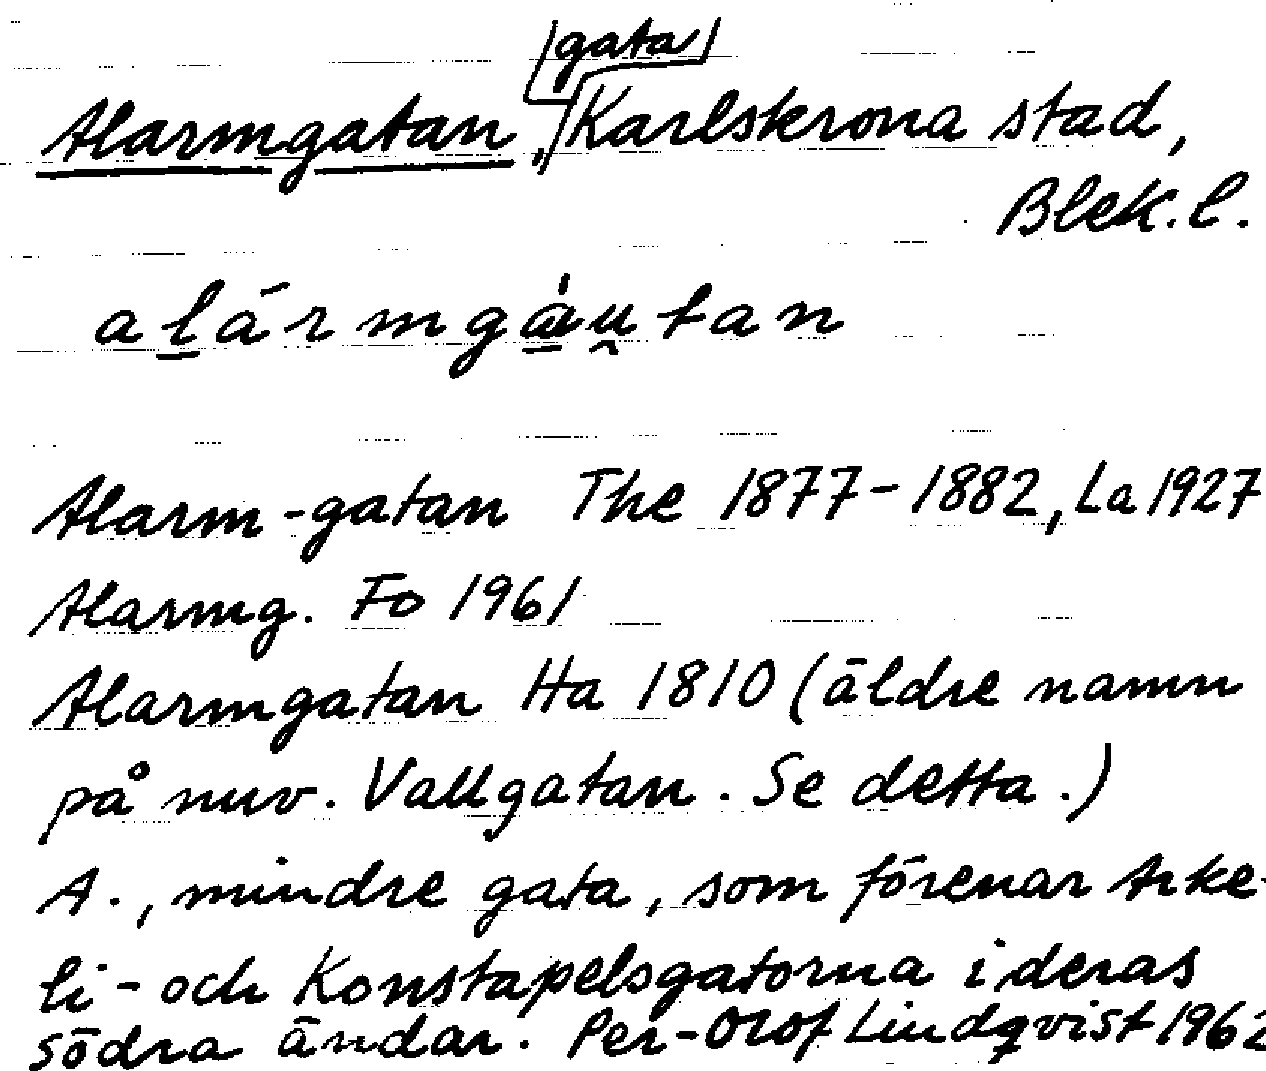 gata
Alarmgatan, Karlskrona stad,
Blek. l.
alármgàu̯tan
Alarm-gatan The 1877-1882, La 1927
Alarmg. Fo 1961
Alarmgatan Ha 1810 (äldre namn
på nuv. Vallgatan. Se detta.)
A., mindre gata, som förenar Arke-
li- och Konstapelsgatorna i deras
södra ändar. Per-Olof Lindqvist 1962